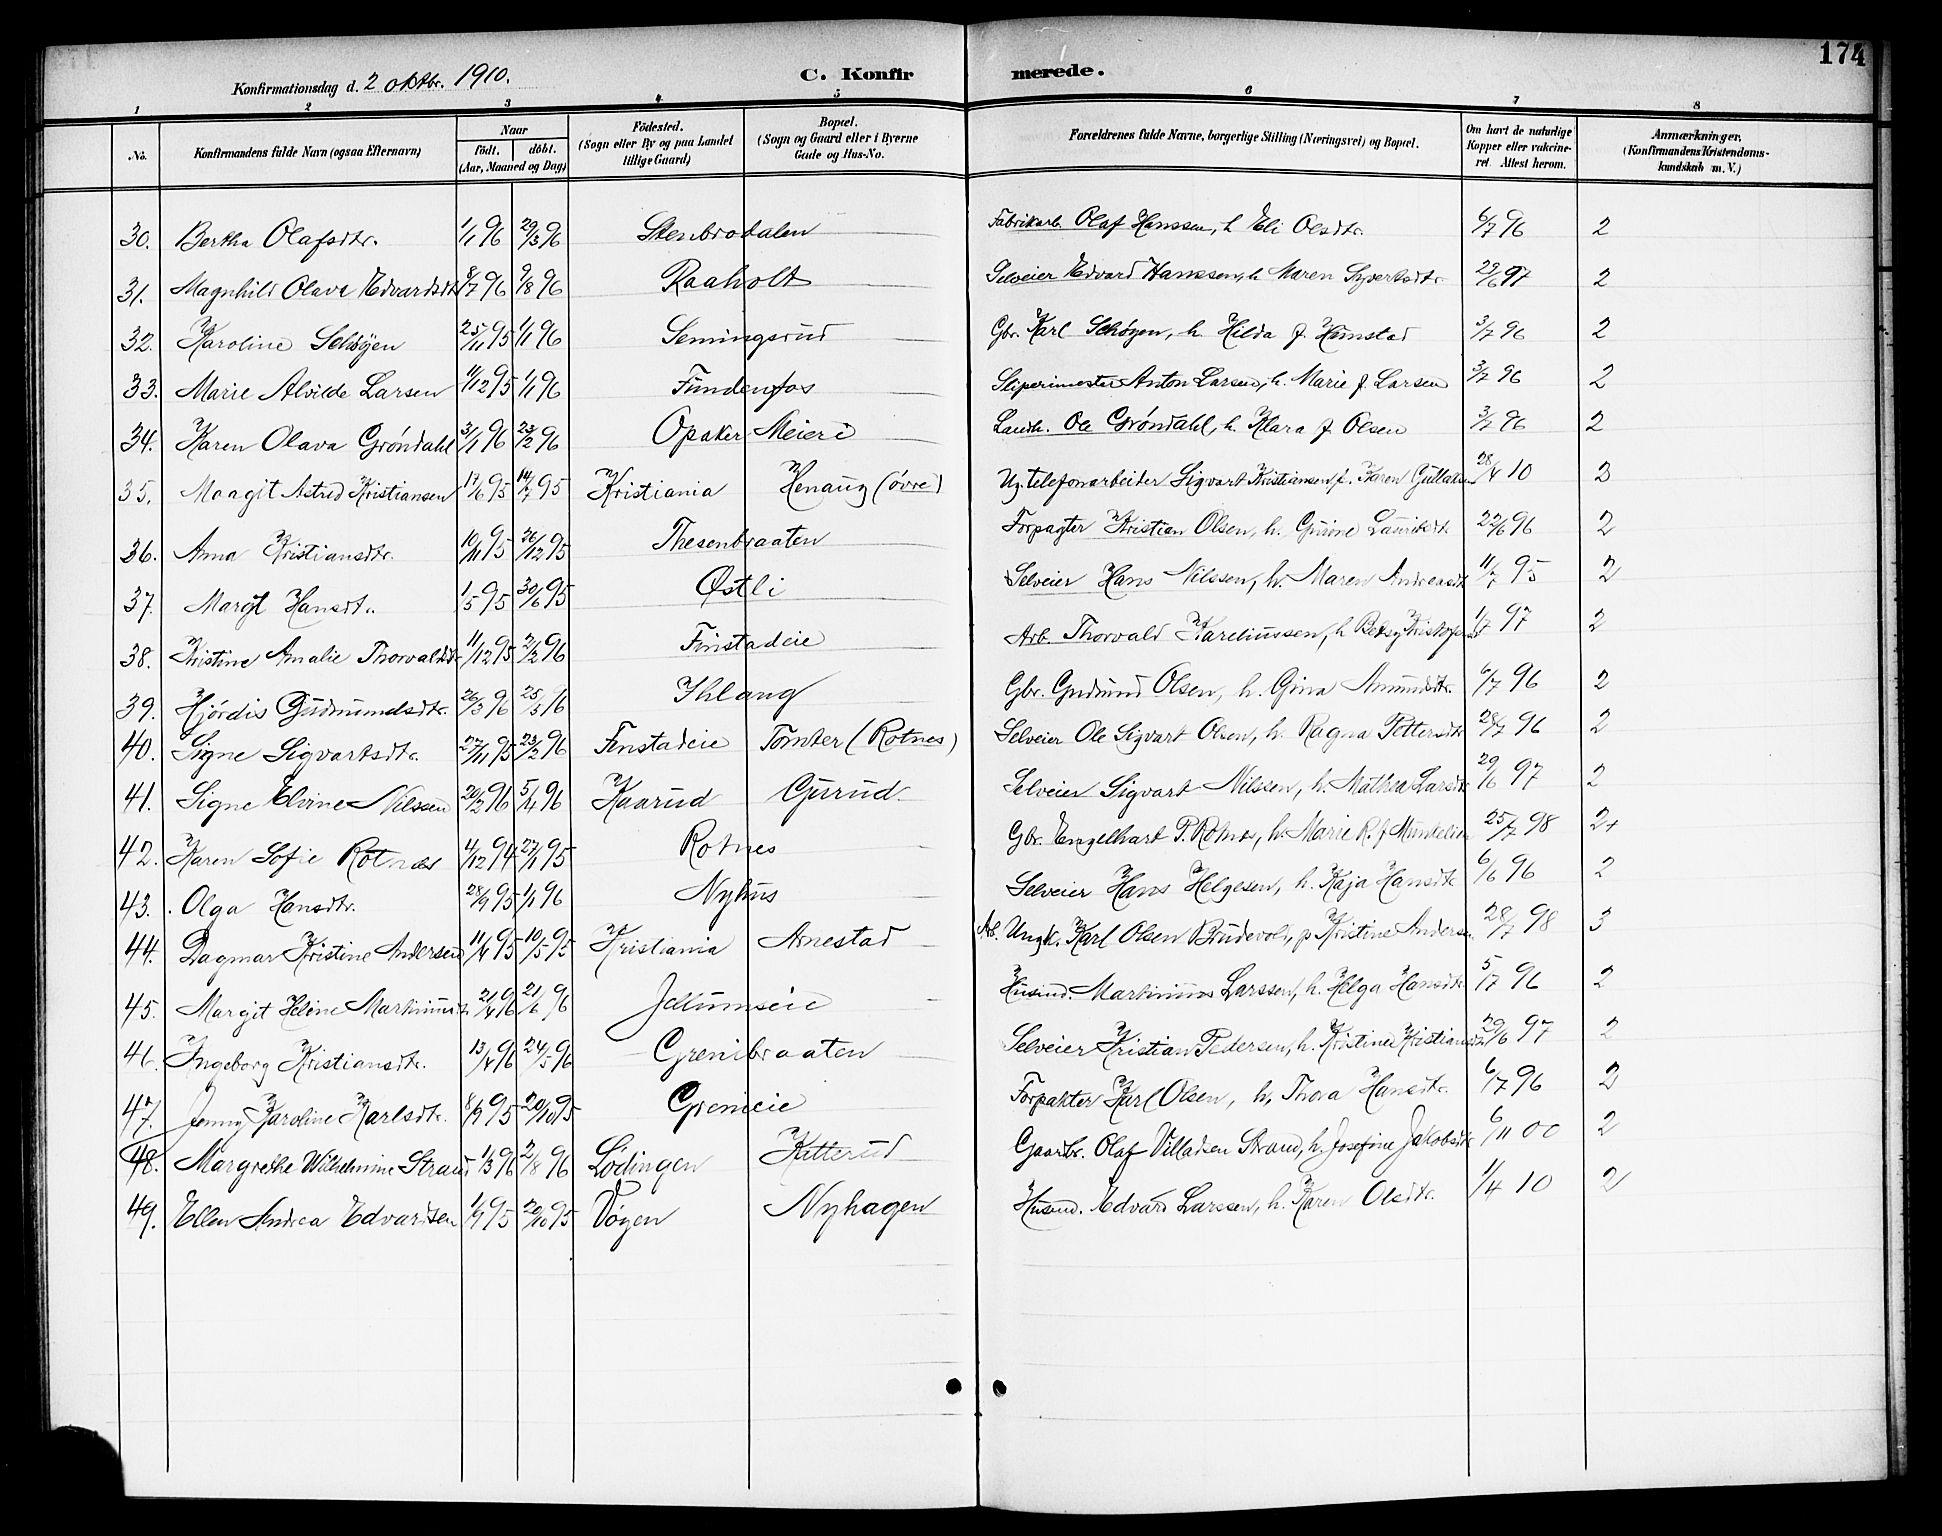 174
Konfirmationsdag d. 2 oktbr. 1910.
C. Konfirmerede.
1 2 3 4 5 6 7 8
No.
Konfirmandens fulde Navn (ogsaa Efternavn)
Naar
födt. döbt.
(Aar, Maaned og Dag)
Födested.
(Sogn eller By og paa Landet
tillige Gaard)
Bopæl.
(Sogn og Gaard eller i Byerne
Gade og Hus-No.
Forældrenes fulde Navne, borgerlige Stilling (Næringsvei) og Bopæl.
Om havt de naturlige
Kopper eller vakcine-
ret. Attest herom.
Anmærkninger.
(Konfirmandens Kristendoms-
kundskab m. V.)
30. Bertha Olafsdtr. 1/1 96 29/3 96 Stenbrodalen Fabrikarb. Olaf Hanssen, h. Eli Olsdtr. 6/7 96 2
31. Magnhild Olava Edvardsdtr 8/7 96 9/8 96 Raaholt Selveier Edvard Hanssen, h. Maren Syvertsdtr. 29/6 97 2
32. Karoline Schöyen 25/11 95 1/1 96 Semingsrud Gbr. Karl Schøyen, h. Hilda f. Hemstad 3/7 96 2
33. Marie Alvilde Larsen 11/12 95 1/1 96 Fundenfos Sliperimester Anton Larsen, h. Marie f. Larsen 3/7 96 2
34. Karen Olava Gröndahl 3/1 96 23/2 96 Opaker Meieri Landh. Ole Gröndahl, h. Klara f. Olsen 3/7 96 2
35. Maagit Astrid Kristiansen 17/6 95 14/7 95 Kristiania Henaug (övre) telefonarbeider Sigvart Kristiansen, f. Karen 28/4 10 3
36. Anna Kristiansdtr. 10/11 95 26/12 95 Thesenbraaten Forpagter Kristian Olsen, h. 22/6 96 2
37. Margit Hansdt. 1/5 95 30/6 95 Østli Selveier Hans Nilssen, h. Maren Andreasdt 11/7 95 2
38. Kristine Amalie Thorvaldsdtr 11/12 95 2/2 96 Finstadeie Arb. Thorvald Kareliussen, h. Betsy 1/7 97 2
39. Hjördis Gudmundsdtr. 26/3 96 25/5 96 Ihlang Gbr. Gudmund Olsen, h. Gina Amundsdtr. 6/7 96 2
40. Signe Sigvartsdtr. 27/11 95 23/2 96 Finstadeie Tomter (Rotnes) Selveier Ole Sigvart Olsen, h. Ragna Pettersdtr 28/7 96 2
41. Signe Elvine Nilssen 20/2 96 5/4 96 Kaarud Gjerud Selveier Sigvart Nilssen, h. Mathea Larsdtr 29/6 97 2
42. Karen Sofie Rotnæs 4/12 94 27/1 95 Rotnes Gbr. Engelhart P. Rotnes, h. Marie R. f. 25/7 98 2+
43. Olga Hansdtr. 28/9 95 1/1 96 Nyhus Selveier Hans Helgesen, h. Kaja Hansdtr 6/6 96 2
44. Dagmar Kristine Andersen 11/4 95 10/5 95 Kristiania Arnestad Arb. Ungk. Karl Olsen Brudevold, p. Kristine Andersen 28/7 98 3
45. Margit Helene Martinusd. 21/4 96 21/6 96 Jellumseie Husmd. Martinus Larssen, h. Helga Hansdtr. 5/7 96 2
46. Ingeborg Kristiansdtr. 13/4 96 24/5 96 Grenibraaten Selveier Kristian Pedersen, h. Kristine Kristiansd 29/6 97 2
47. Jenny Karoline Karlsdtr. 8/9 95 20/10 95 Grenieie Forpakter Karl Olsen, h. Thora Hansdtr. 6/7 96 2
48. Margrethe Wilhelmine Strand 1/3 96 2/8 96 Lödingen Kitterud Gaardbr. Olaf Villadsen Strand, h. Josefine Jakobsdtr 6/11 00 2
49. Ellen Andrea Edvardsen 1/9 95 20/10 95 Vöyen Nyhagen Husmd. Edvard Larssen, h. Karen Olsdtr. 1/4 10 2